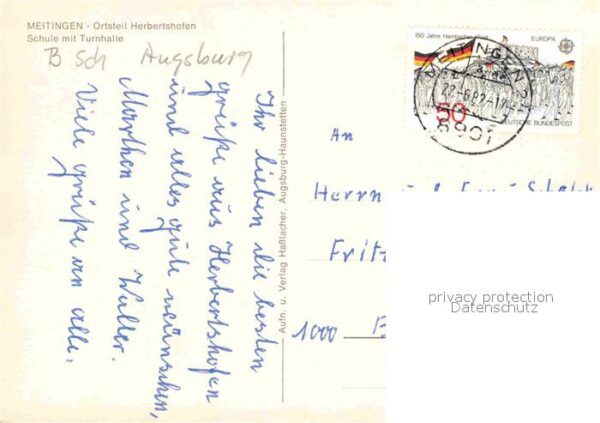 MEITINGEN - Ortsteil Herbertshofen
Schule mit Turnhalle
B Sch Augsburg
Ihr lieben die besten
grüße aus Herbertshofen
und alles gute wünschen,
Marthen und Walter.
Viele grüße an alle.
Aufn. u. Verlag Haßlacher, Augsburg-Haunstetten
150 Jahre Hambacher Fest
EUROPA
50
DEUTSCHE BUNDESPOST
MEITINGEN
22.-6.82.-17
8901
An
Herrn
Fritz
1000 B
privacy protection
Datenschutz